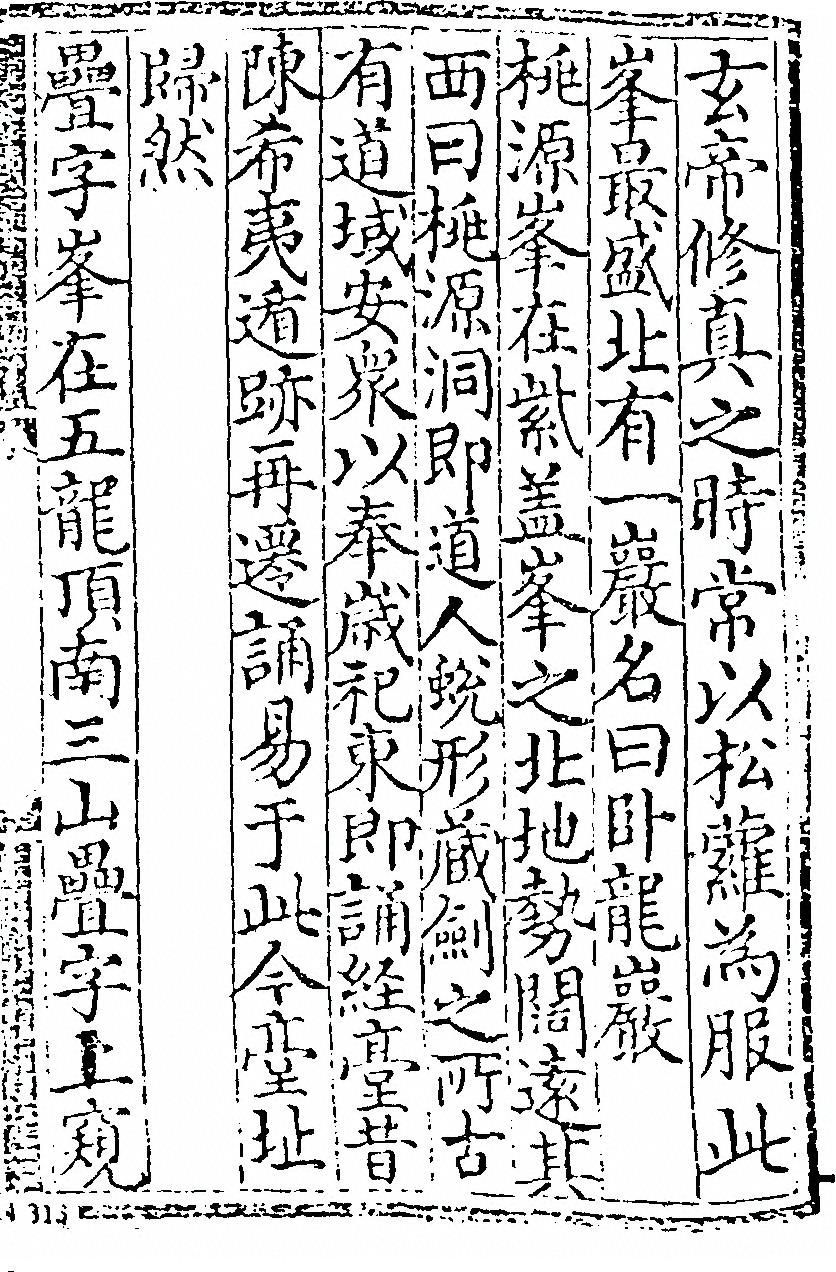 玄帝修真之時常以松蘿為服此
峯最盛北有一巖名曰卧龍巖
桃源峯在紫蓋峯之北地勢闊遠其
西曰桃源洞即道人蛻形蔵劍之所古
有道域安衆以奉歳祀東即誦経䑓昔
陳希夷遁跡再遷誦易于此今䑓址
歸然
疊字峯在五龍頂南三山疊字上窺
313